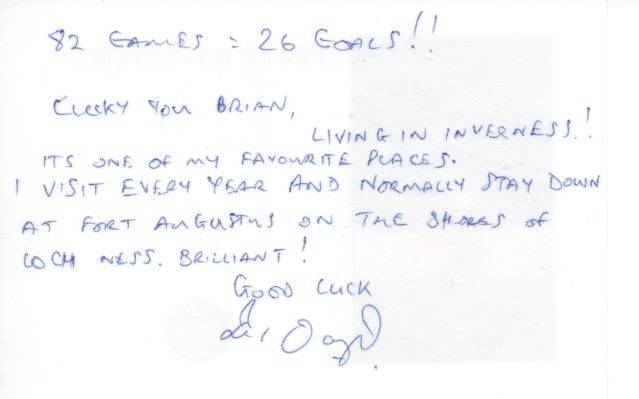 82 GAMES = 26 GOALS!!
LUCKY YOU BRIAN,
LIVING IN INVERNESS!!
ITS ONE OF MY FAVOURITE PLACES.
I VISIT EVERY YEAR AND NORMALLY STAY DOWN
AT FORT AUGUSTUS ON THE SHORES OF
LOCH NESS. BRILLIANT!
GOOD LUCK